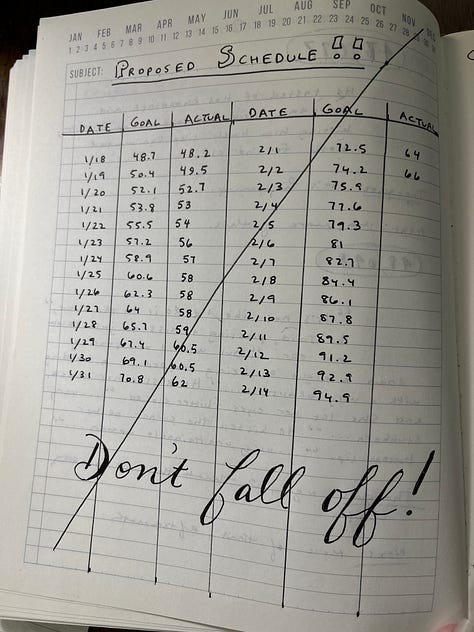 JAN FEB MAR APR MAY JUN JUL AUG SEP OCT NOV DEC
1 2 3 4 5 6 7 8 9 10 11 12 13 14 15 16 17 18 19 20 21 22 23 24 25 26 27 28 29 30 31
SUBJECT: PROPOSED SCHEDULE !!
DATE GOAL ACTUAL DATE GOAL ACTUAL
1/18 48.7 48.2 2/1 72.5 64
1/19 50.4 49.5 2/2 74.2 66
1/20 52.1 52.7 2/3 75.9
1/21 53.8 53 2/4 77.6
1/22 55.5 54 2/5 79.3
1/23 57.2 56 2/6 81
1/24 58.9 57 2/7 82.7
1/25 60.6 58 2/8 84.4
1/26 62.3 58 2/9 86.1
1/27 64 58 2/10 87.8
1/28 65.7 59 2/11 89.5
1/29 67.4 60.5 2/12 91.2
1/30 69.1 60.5 2/13 92.9
1/31 70.8 62 2/14 94.9
Don't fall off!